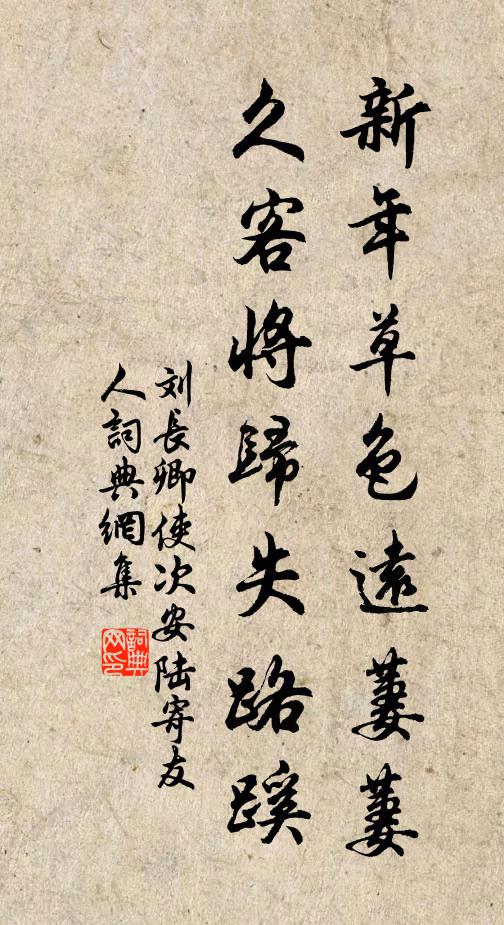 新年草色遠萋萋
久客將歸失路蹊
刘長卿使次安陆寄友
人詞典網集
詞典网印